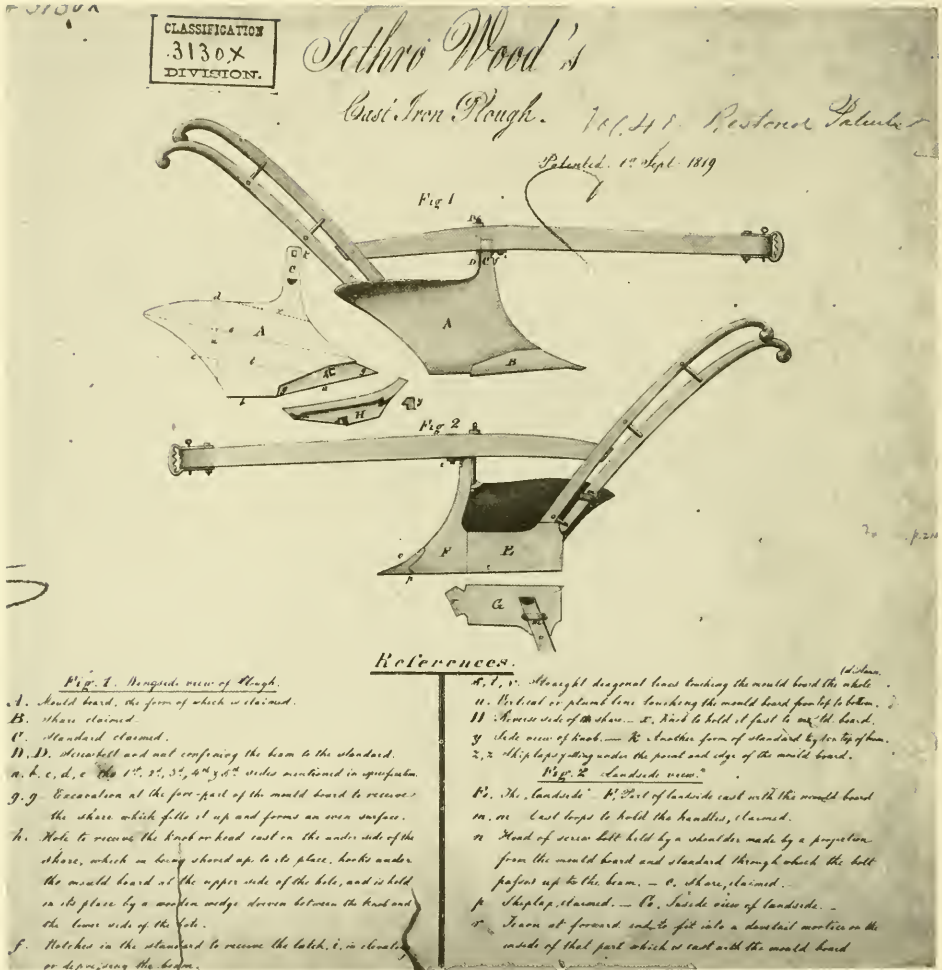 3130X
CLASSIFICATION
3130X
DIVISION.
Jethro Wood's
Cast Iron Plough.
Vol. 41. Restored Patents
Patented. 1st Sept. 1819
Fig 1
A
B
C
A
H
Fig. 2
F
E
G
References.
Fig. 1. view of Plough.
A. Mould board, the form of which is claimed.
B. Share claimed.
C. Standard claimed.
D, D. screwbolt and nut confining the beam to the standard.
a. b. c, d, e the 1st, 2d, 3d, 4th & 5th sides mentioned in specification.
g. g. Excavation at the fore-part of the mould board to receive
the share which fills it up and forms an even surface.
h. Hole to receive the knob or head cast on the under side of the
share, which in being shoved up to its place, hooks under
the mould board at the upper side of the hole, and is held
in its place by a wooden wedge driven between the knob and
the lower side of the hole.
f. Notches in the standard to receive the latch, i, in elevating
or depressing the beam.
s, t, r. Straight diagonal lines touching the mould board the whole
u. Vertical or plumb line touching the mould board from top to bottom.
H Reverse side of share — x, Knob to hold it fast to mould board.
y Side view of knob. — K Another form of standard by top of beam.
z, z Shiplaps getting under the point and edge of the mould board.
Fig. 2 Landside view.
E. The "landside" - F, Part of landside cast with the mould board
m, m Cast loops to hold the handles, claimed.
n Head of screw bolt held by a shoulder made by a projection
from the mould board and standard through which the bolt
passes up to the beam. — o. share, claimed.
p Shiplap, claimed. — G. Inside view of landside. —
r Tenon at forward end to fit into a dovetail mortice on the
inside of that part which is cast with the mould board
p. 210